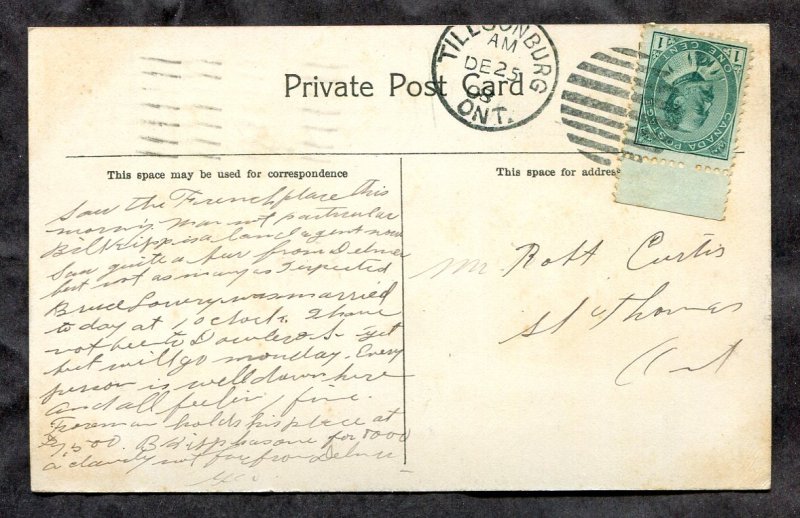 TILLSONBURG
AM
DE 25
08
ONT.
Private Post Card
CANADA POSTAGE
ONE CENT
1
1
This space may be used for correspondence
This space for address
Saw the French place this
morning was not particular
Bil Kipp is a land agent now
Saw quite a few from Delmer
but not as many as I expected
Bruce Lowery was married
to day at 1 oclock. I have
not been to Dowlers yet
but will go monday. Every
person is well down here
and all feelin fine.
Foreman holds his place at
$7,500. B Kipp has one for 8000
a clardy not far from Delmer
Mr. Robt Curtis
St Thomas
Ont